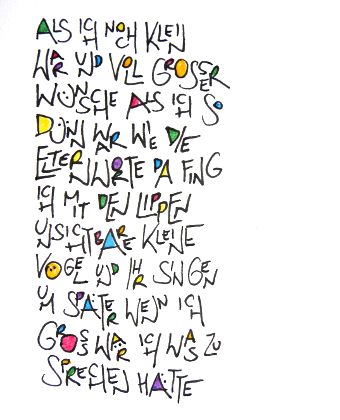 ALS ICH NOCH KLEIN
WAR UND VOLL GROSSER
WÜNSCHE ALS ICH SO
DÜNN WAR WIE DIE
ELTERNWORTE DA FING
ICH MIT DEN LIPPEN
UNSICHTBARE KLEINE
VOGEL UND IHR SINGEN
UM SPÄTER WENN ICH
GROSS WAR ICH WAS ZU
SPRECHEN HÄTTE